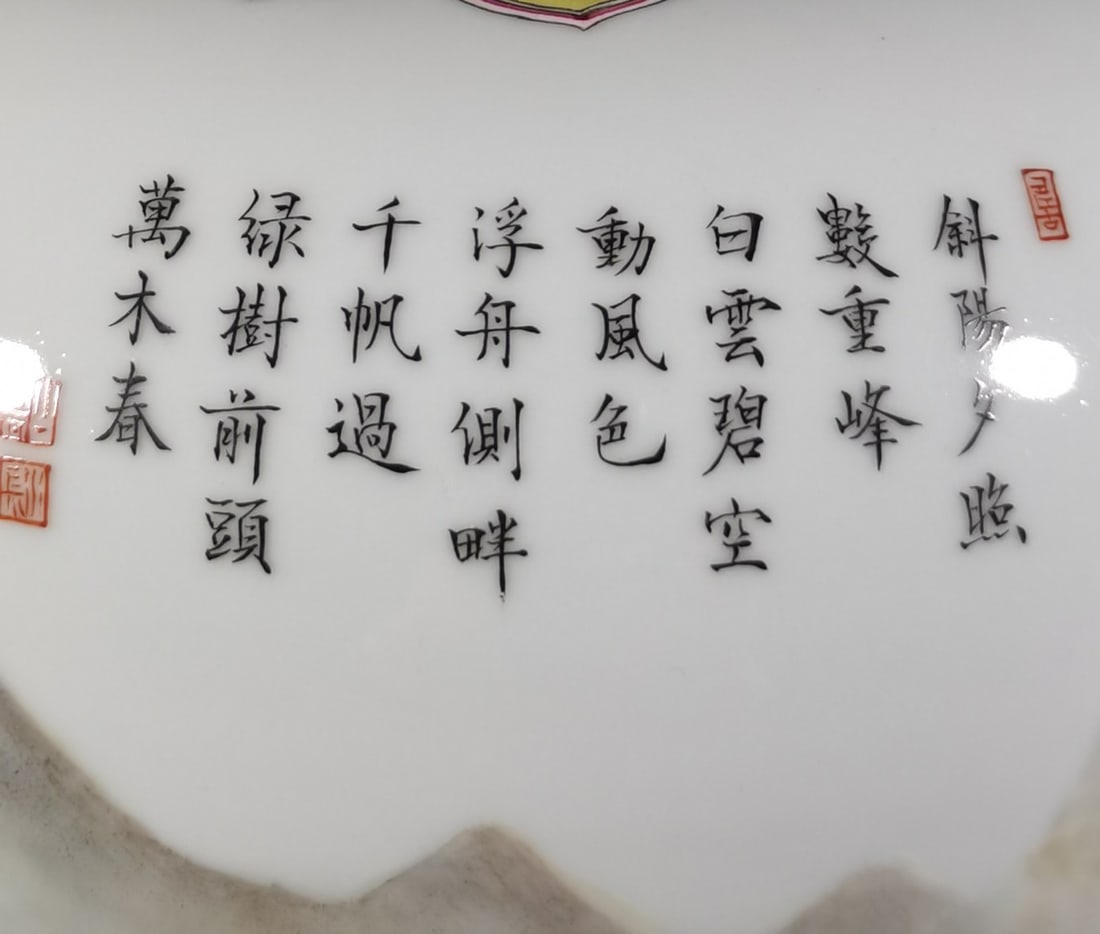 斜陽夕照
數重峰
白雲碧空
動風色
浮舟側畔
千帆過
緑樹前頭
萬木春